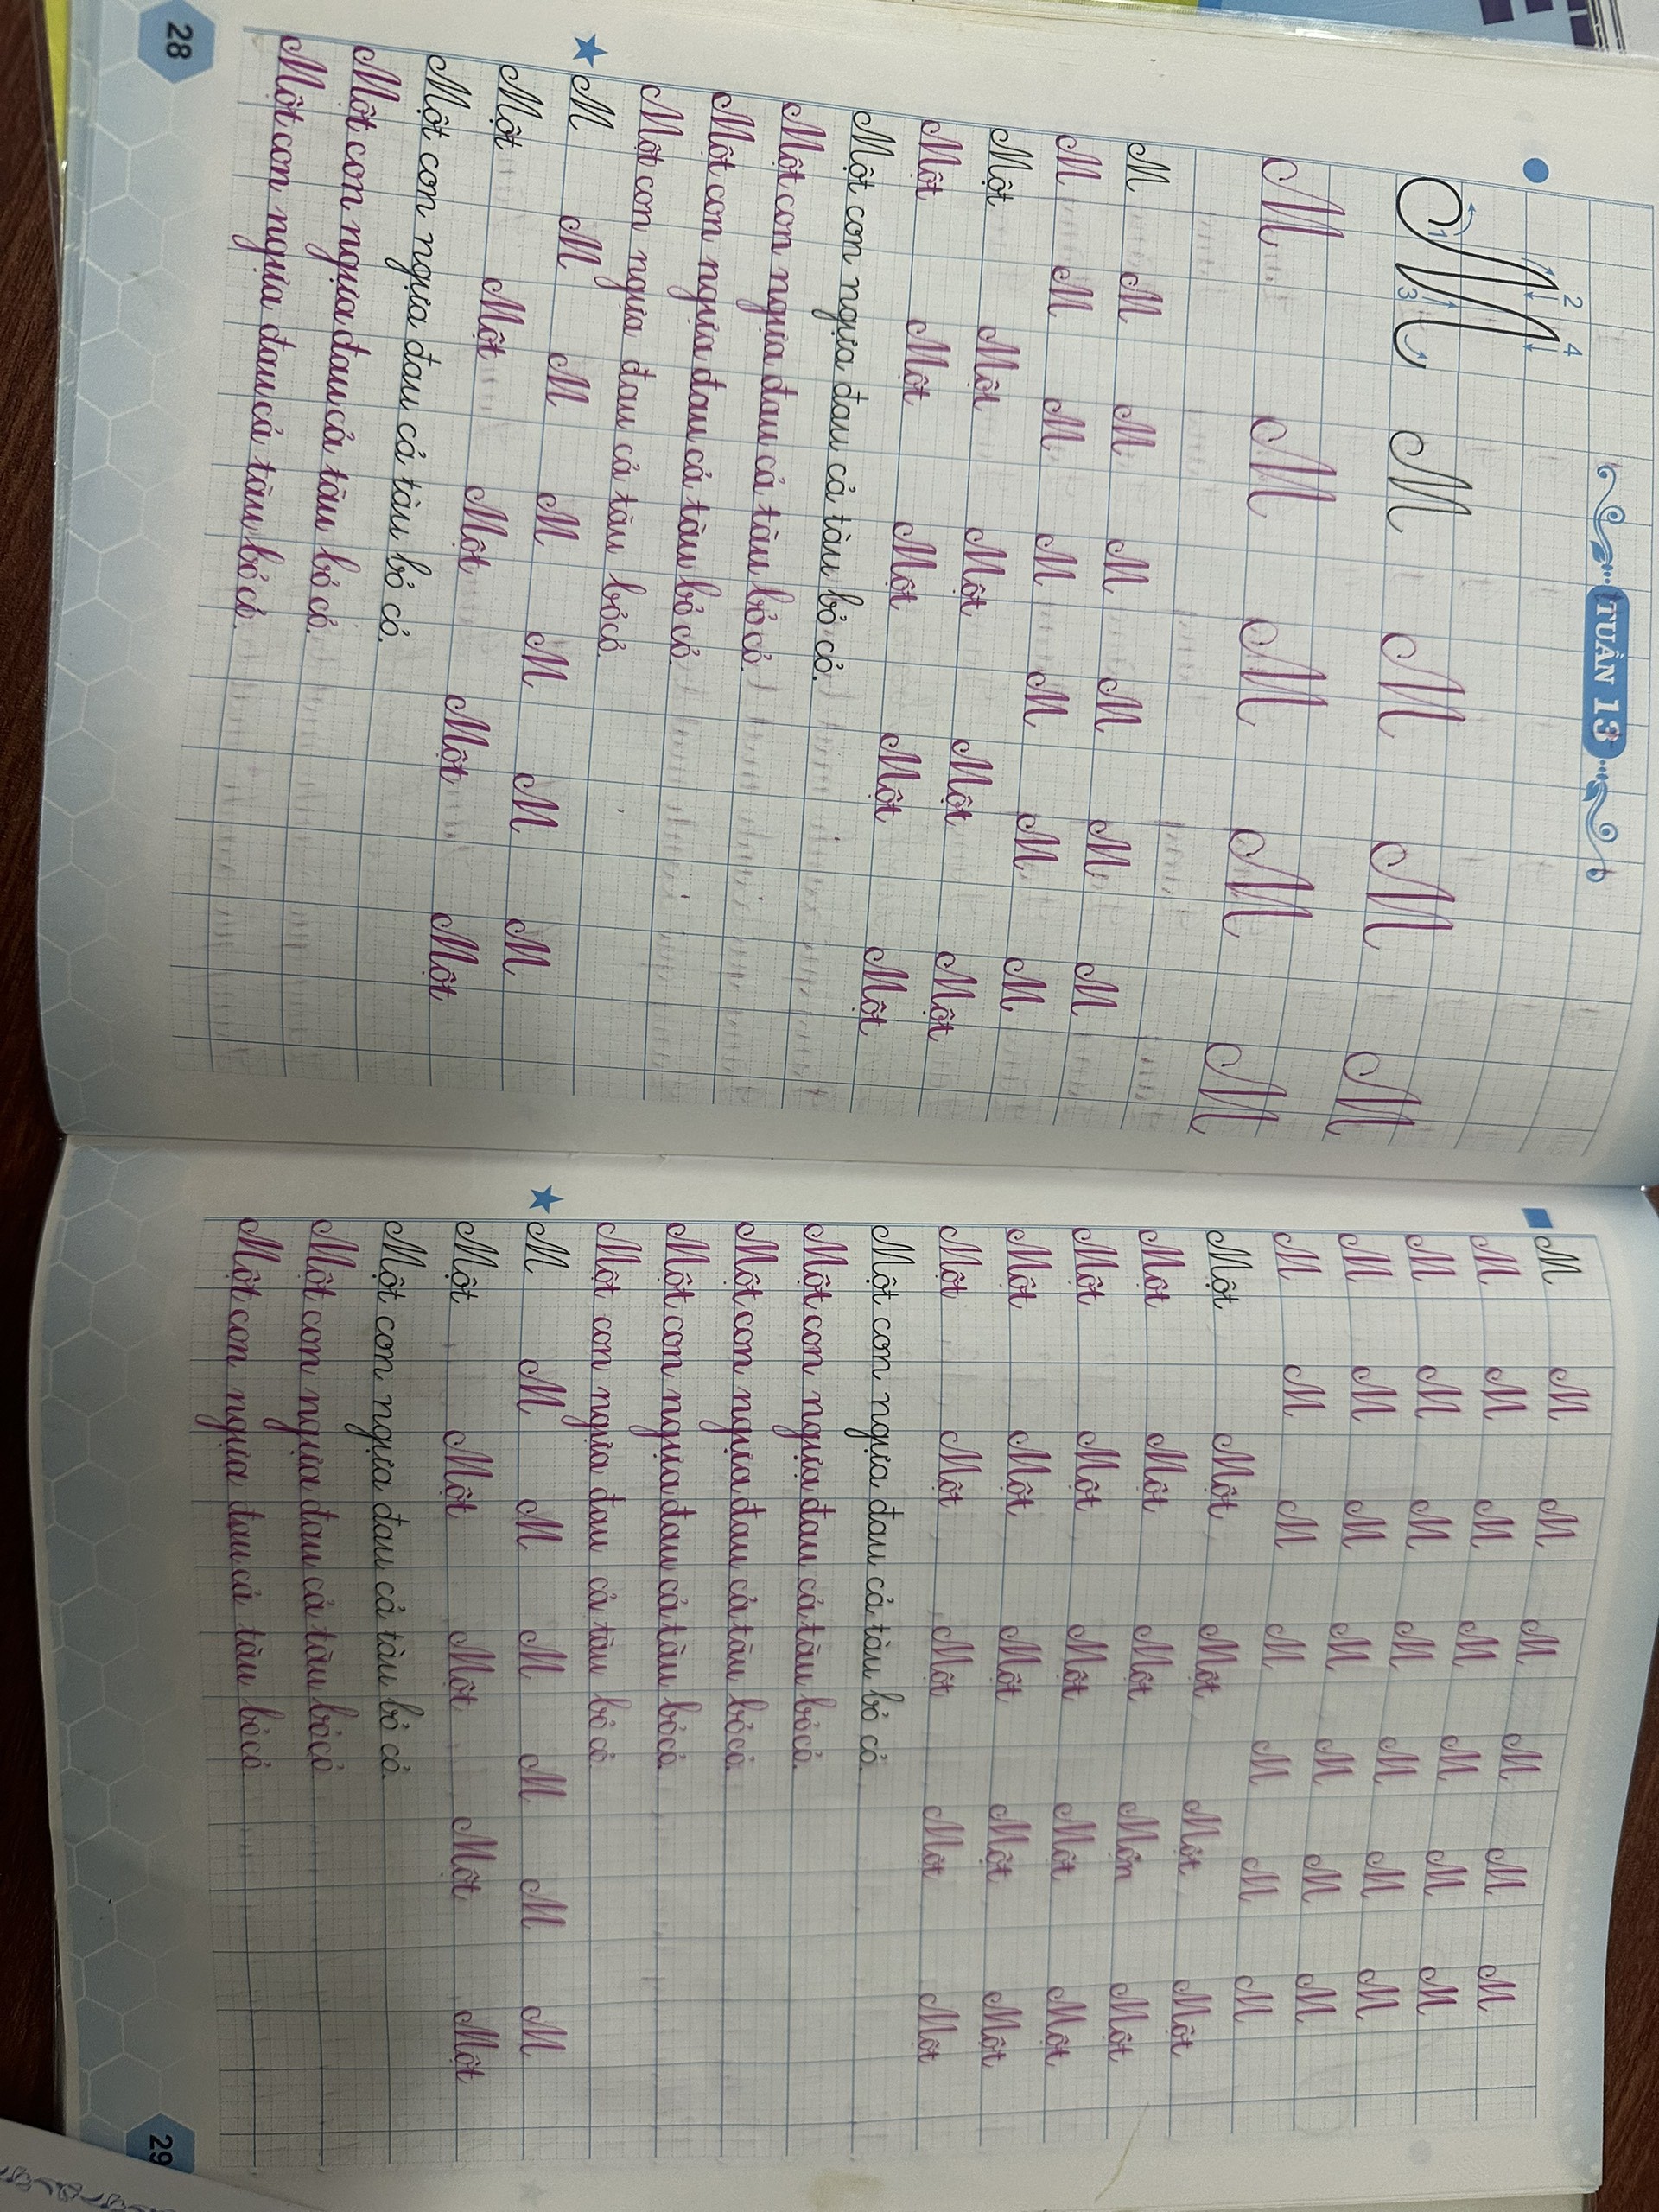 TUẦN 13
2 4
1 3
M M M M M
M M M M M
M M M M M M M
M M M M M M M
Một Một Một Một Một
Một Một Một Một Một
Một con ngựa đau cả tàu bỏ cỏ.
Một con ngựa đau cả tàu bỏ cỏ.
Một con ngựa đau cả tàu bỏ cỏ.
Một con ngựa đau cả tàu bỏ cỏ.
M M M M M M M
Một Một Một Một Một
Một con ngựa đau cả tàu bỏ cỏ.
Một con ngựa đau cả tàu bỏ cỏ.
Một con ngựa đau cả tàu bỏ cỏ.
28
M M M M M M M
M M M M M M M
M M M M M M M
M M M M M M M
M M M M M M M
Một Một Một Một Một
Một Một Một Mộn Một
Một Một Một Một Một
Một Một Một Một Một
Một Một Một Một Một
Một con ngựa đau cả tàu bỏ cỏ.
Một con ngựa đau cả tàu bỏ cỏ.
Một con ngựa đau cả tàu bỏ cỏ.
Một con ngựa đau cả tàu bỏ cỏ.
Một con ngựa đau cả tàu bỏ cỏ.
M M M M M M M
Một Một Một Một Một
Một con ngựa đau cả tàu bỏ cỏ.
Một con ngựa đau cả tàu bỏ cỏ
Một con ngựa đau cả tàu bỏ cỏ
29